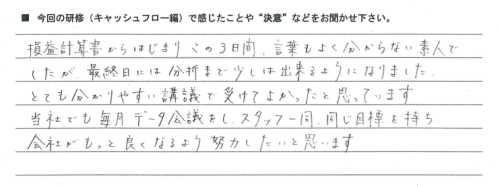 ■ 今回の研修（キャッシュフロー編）で感じたことや“決意”などをお聞かせ下さい。
損益計算書からはじまり この3日間、言葉もよく分からない素人で
したが、最終日には分析まで少しは出来るようになりました、
とても分かりやすい講議で受けてよかったと思っています
当社でも毎月データ会議をし、スタッフ一同、同じ目標を持ち
会社がもっと良くなるよう努力したいと思います